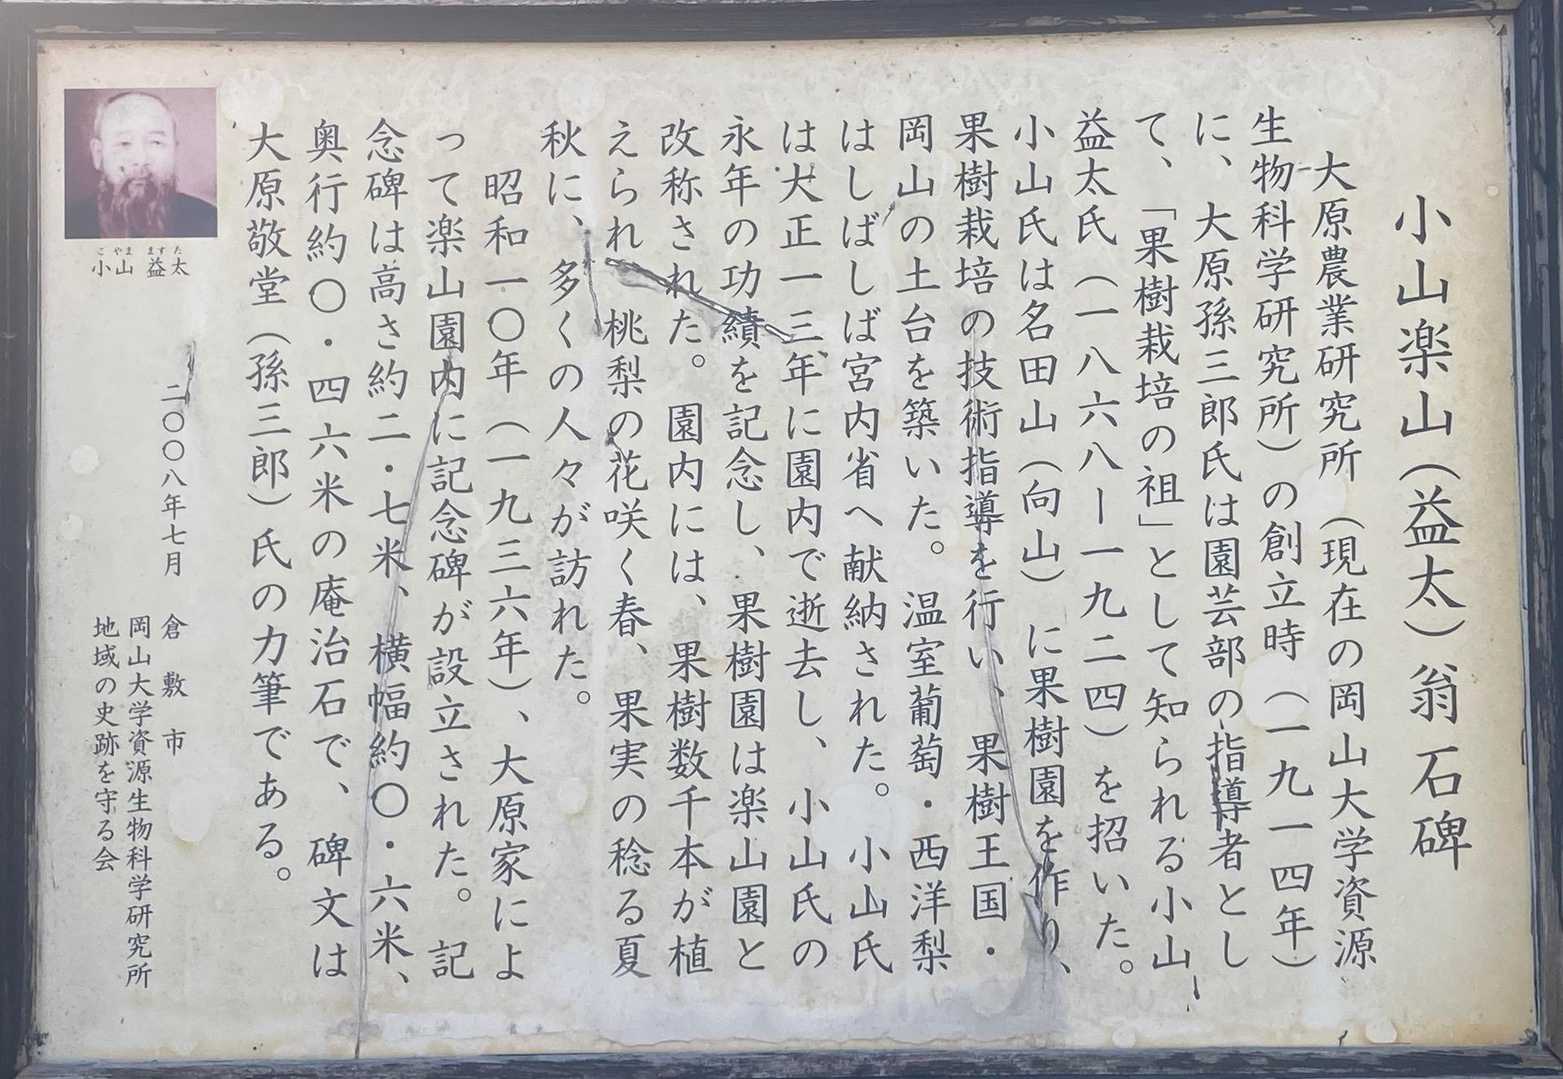 小山楽山（益太）翁石碑
大原農業研究所（現在の岡山大学資源
生物科学研究所）の創立時（一九一四年）
に、大原孫三郎氏は園芸部の指導者とし
て、「果樹栽培の祖」として知られる小山
益太氏（一八六八ー一九二四）を招いた。
小山氏は名田山（向山）に果樹園を作り、
果樹栽培の技術指導を行い、果樹王国・
岡山の土台を築いた。温室葡萄・西洋梨
はしばしば宮内省へ献納された。小山氏
は大正一三年に園内で逝去し、小山氏の
永年の功績を記念し、果樹園は楽山園と
改称された。園内には、果樹数千本が植
えられ、桃梨の花咲く春、果実の稔る夏
秋に、多くの人々が訪れた。
昭和一〇年（一九三六年）、大原家によ
って楽山園内に記念碑が設立された。記
念碑は高さ約二・七米、横幅約〇・六米、
奥行約〇・四六米の庵治石で、碑文は
大原敬堂（孫三郎）氏の力筆である。
二〇〇八年七月　倉敷市
岡山大学資源生物科学研究所
地域の史跡を守る会
こやま　ますた
小山　益太